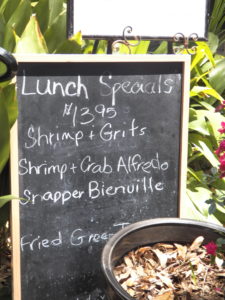 Lunch Specials
$13.95
Shrimp + Grits
Shrimp + Crab Alfredo
Snapper Bienville
Fried Green